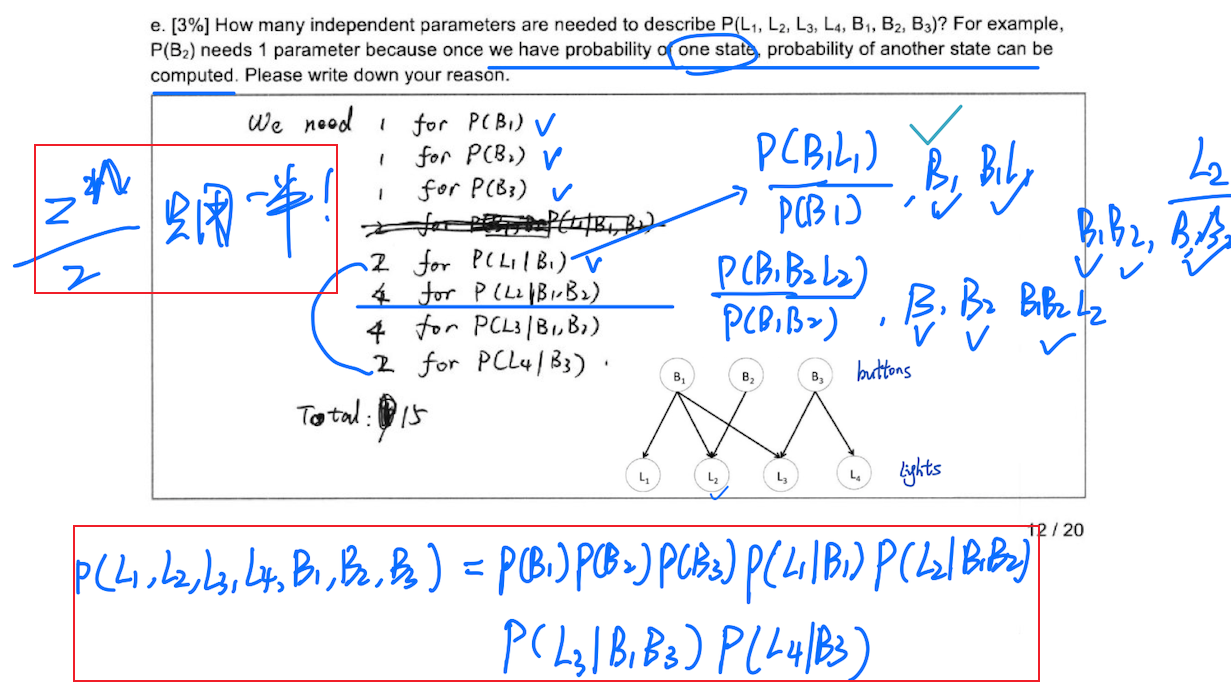 e. [3%] How many independent parameters are needed to describe P(L₁, L₂, L₃, L₄, B₁, B₂, B₃)? For example,
P(B₂) needs 1 parameter because once we have probability of one state, probability of another state can be
computed. Please write down your reason.
We need 1 for P(B₁) ✓
1 for P(B₂) ✓
1 for P(B₃) ✓
2 for P(L₁|B₁) ✓
4 for P(L₂|B₁,B₂)
4 for P(L₃|B₁,B₃)
2 for P(L₄|B₃).
Total: 15
2
只用一半!
P(B₁L₁)
P(B₁)
, B₁ B₁L₁
P(B₁B₂L₂)
P(B₁B₂)
, B₁ B₂ B₁B₂L₂
L₂
B₁B₂,
B₁ B₂ B₃ buttons
L₁ L₂ L₃ L₄ Lights
12 / 20
P(L₁,L₂,L₃,L₄,B₁,B₂,B₃) = P(B₁)P(B₂)P(B₃)P(L₁|B₁)P(L₂|B₁B₂)
P(L₃|B₁B₃)P(L₄|B₃)